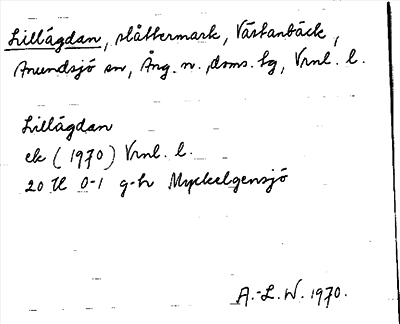 Lillägdan, slåttermark, Västanbäck,
Anundsjö sn, Ång. n. doms. lg, Vrnl. l.
Lillägdan
ek (1970) Vrnl. l.
20 H 0-1 g-h Myckelgensjö
A.-L. W. 1970.